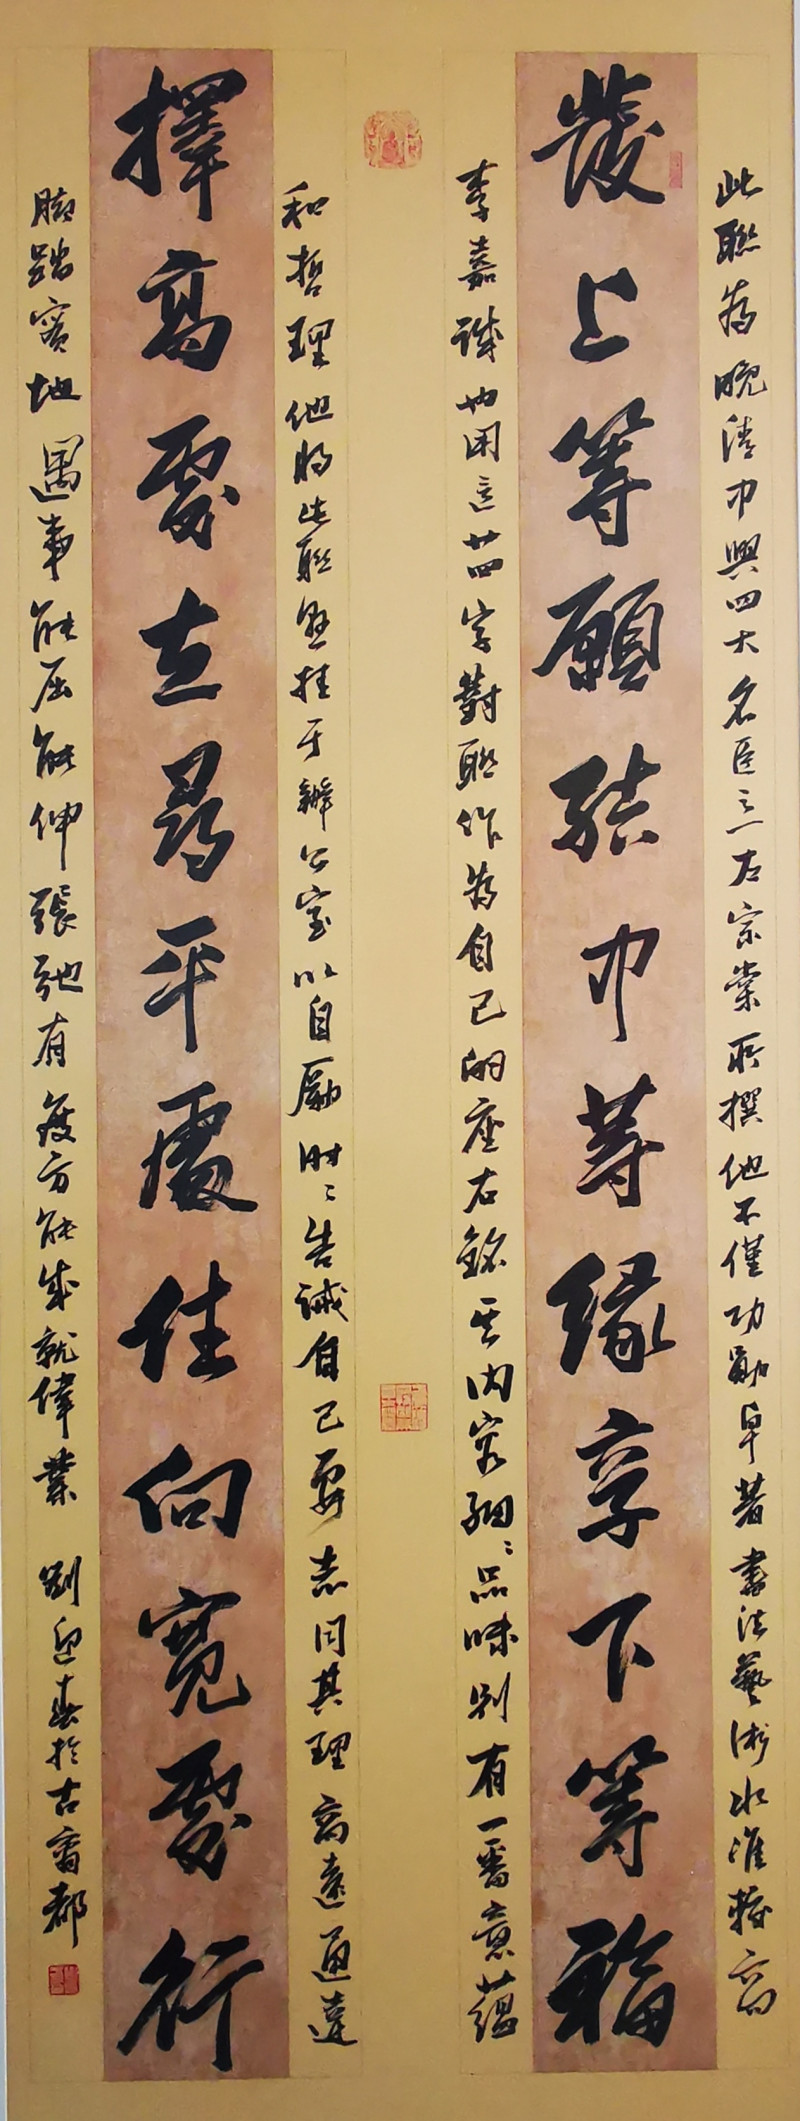 此聯為晚清中興四大名臣之一左宗棠所撰他不僅功勛卓著書法藝術水准較高
發上等願結中等緣享下等福
李嘉誠也用這廿四字對聯作為自己的座右銘其内容細〻品味别有一番意蕴
和哲理他將此聯懸挂于辦公室以自勵时〻告誡自己要志同其理高遠通達
擇高處立尋平處住向寬處行
脚踏實地遇事能屈能伸張弛有度方能成就偉業 劉迎春於古商都